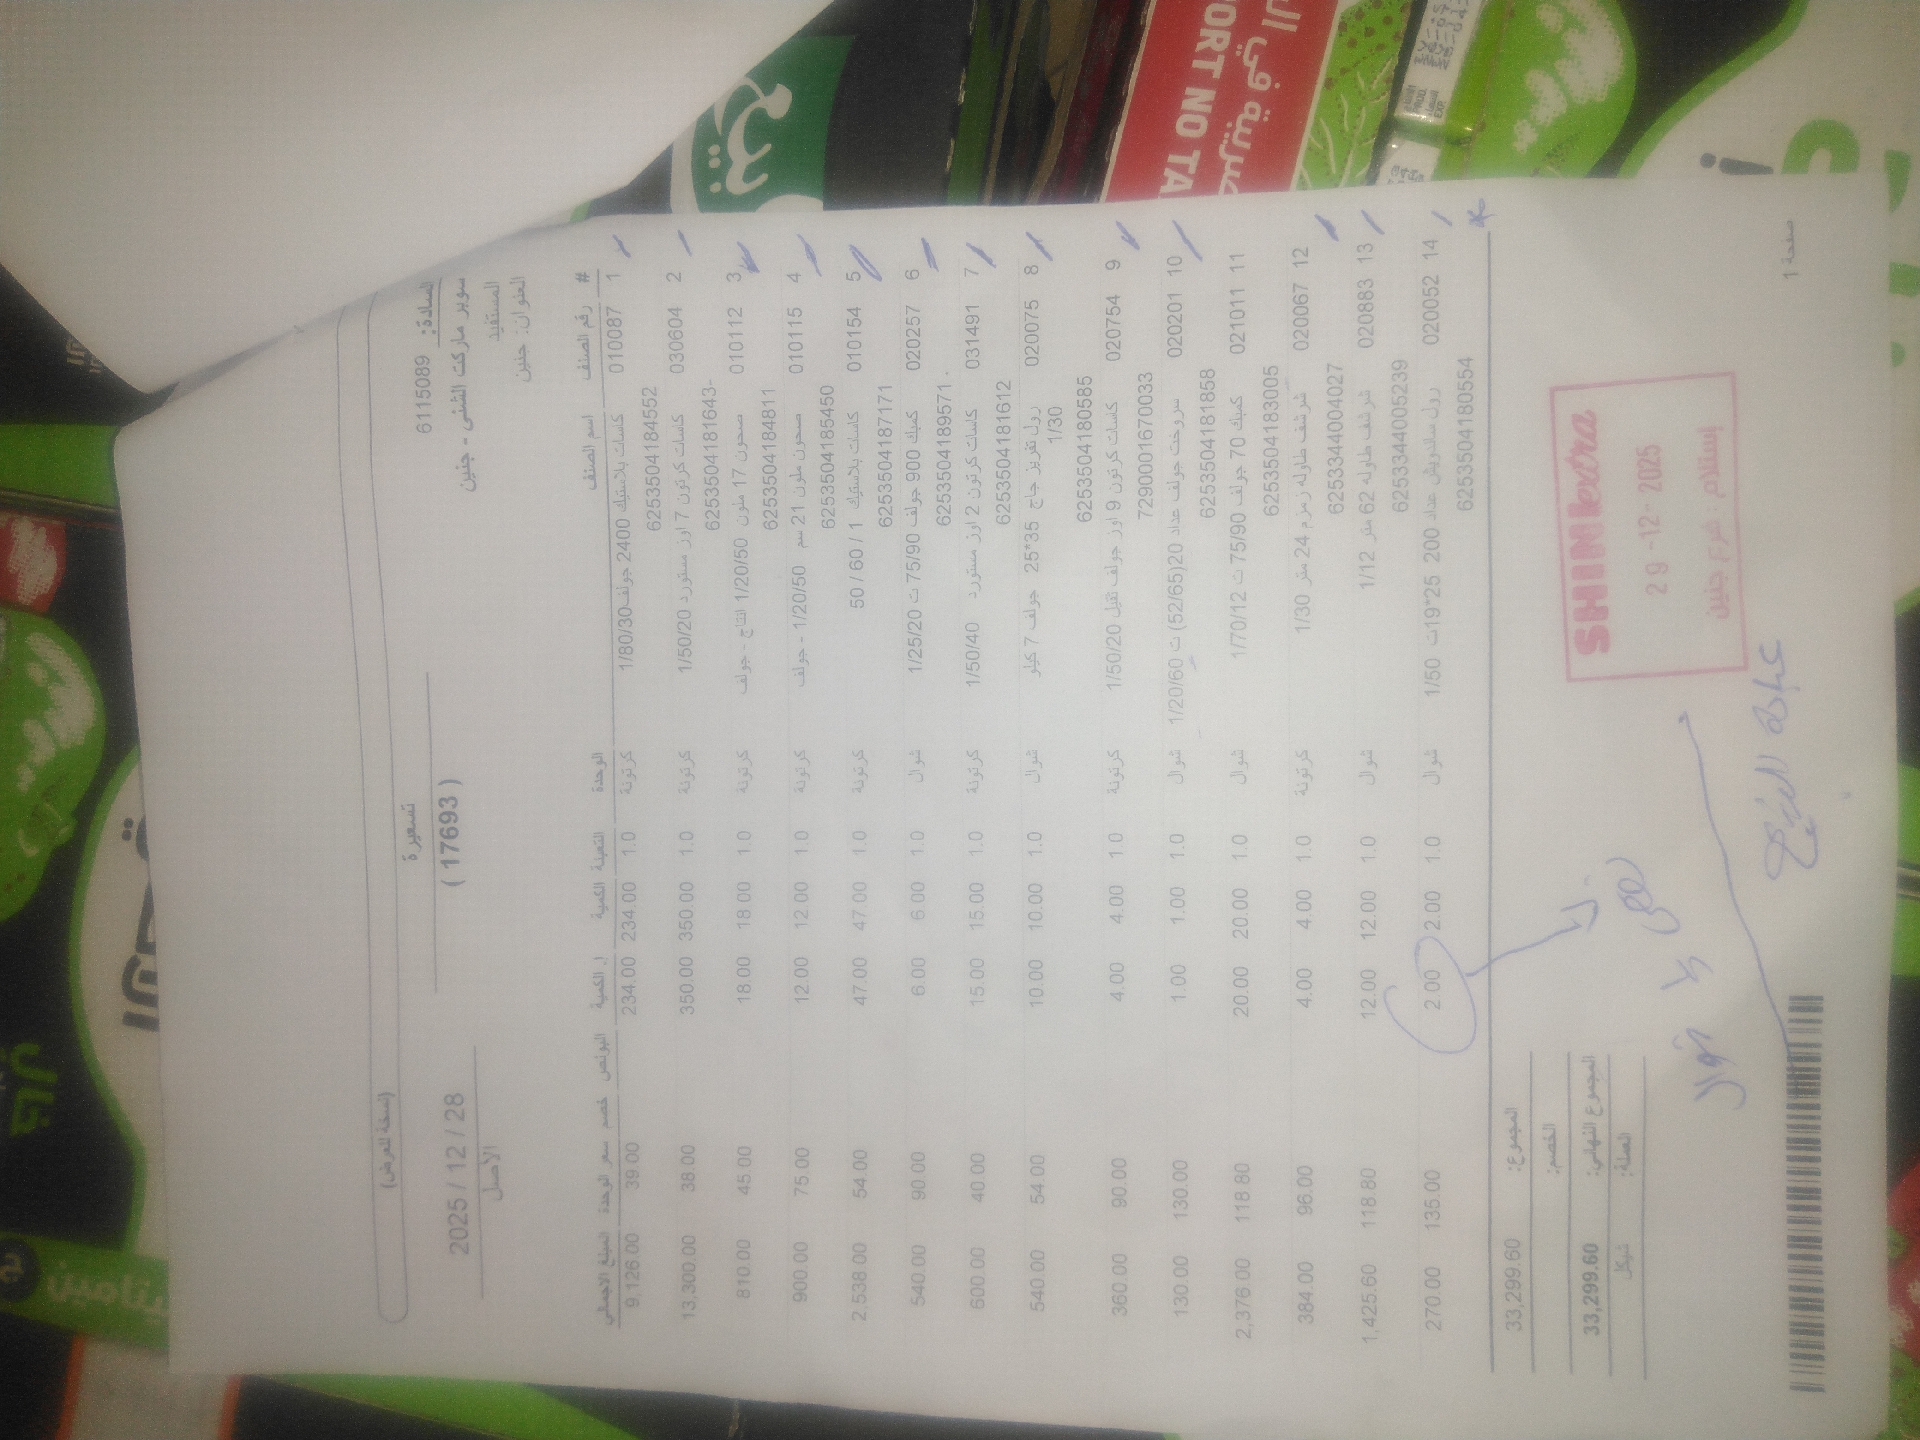 (نسخة للعرض)
السادة: 6115089
تسعيرة
( 17693 )
2025 / 12 / 28
سوبر ماركت الشني - جنين
الأصل
المستفيد
العنوان: جنين
# رقم الصنف اسم الصنف الوحدة التعبئة الكمية ا. الكمية البونص خصم سعر الوحدة المبلغ الاجمالي
1 010087 كاسات بلاستيك 2400 جولف1/80/30 كرتونة 1.0 234.00 234.00 39.00 9,126.00
6253504184552
2 030604 كاسات كرتون 7 اوز مستورد 1/50/20 كرتونة 1.0 350.00 350.00 38.00 13,300.00
6253504181643-
3 010112 صحون 17 ملون 1/20/50 انتاج - جولف كرتونة 1.0 18.00 18.00 45.00 810.00
6253504184811
4 010115 صحون ملون 21 سم 1/20/50 - جولف كرتونة 1.0 12.00 12.00 75.00 900.00
6253504185450
5 010154 كاسات بلاستيك 1 / 60 / 50 كرتونة 1.0 47.00 47.00 54.00 2,538.00
6253504187171
6 020257 كمباك 900 جولف 75/90 ت 1/25/20 شوال 1.0 6.00 6.00 90.00 540.00
6253504189571-
7 031491 كاسات كرتون 2 اوز مستورد 1/50/40 كرتونة 1.0 15.00 15.00 40.00 600.00
6253504181612
8 020075 رول تفريز جاج 35*25 جولف 7 كيلو شوال 1.0 10.00 10.00 54.00 540.00
1/30
6253504180585
9 020754 كاسات كرتون 9 اوز جولف ثقيل 1/50/20 كرتونة 1.0 4.00 4.00 90.00 360.00
7290001670033
10 020201 سروخت جولف عداد 20(52/65) ت 1/20/60 شوال 1.0 1.00 1.00 130.00 130.00
6253504181858
11 021011 كمباك 70 جولف 75/90 ت 1/70/12 شوال 1.0 20.00 20.00 118.80 2,376.00
6253504183005
12 020067 شرشف طاوله زمزم 24 متر 1/30 كرتونة 1.0 4.00 4.00 96.00 384.00
6253344004027
13 020883 شرشف طاوله 62 متر 1/12 شوال 1.0 12.00 12.00 118.80 1,425.60
6253344005239
14 020052 رول ساندويش عداد 200 25*19ت 1/50 شوال 1.0 2.00 2.00 135.00 270.00
6253504180554
المجموع: 33,299.60
الخصم:
المجموع النهائي: 33,299.60
العملة: شيكل
SHINI extra
29-12-2025
إستلام: فرع جنين
صفحة 1